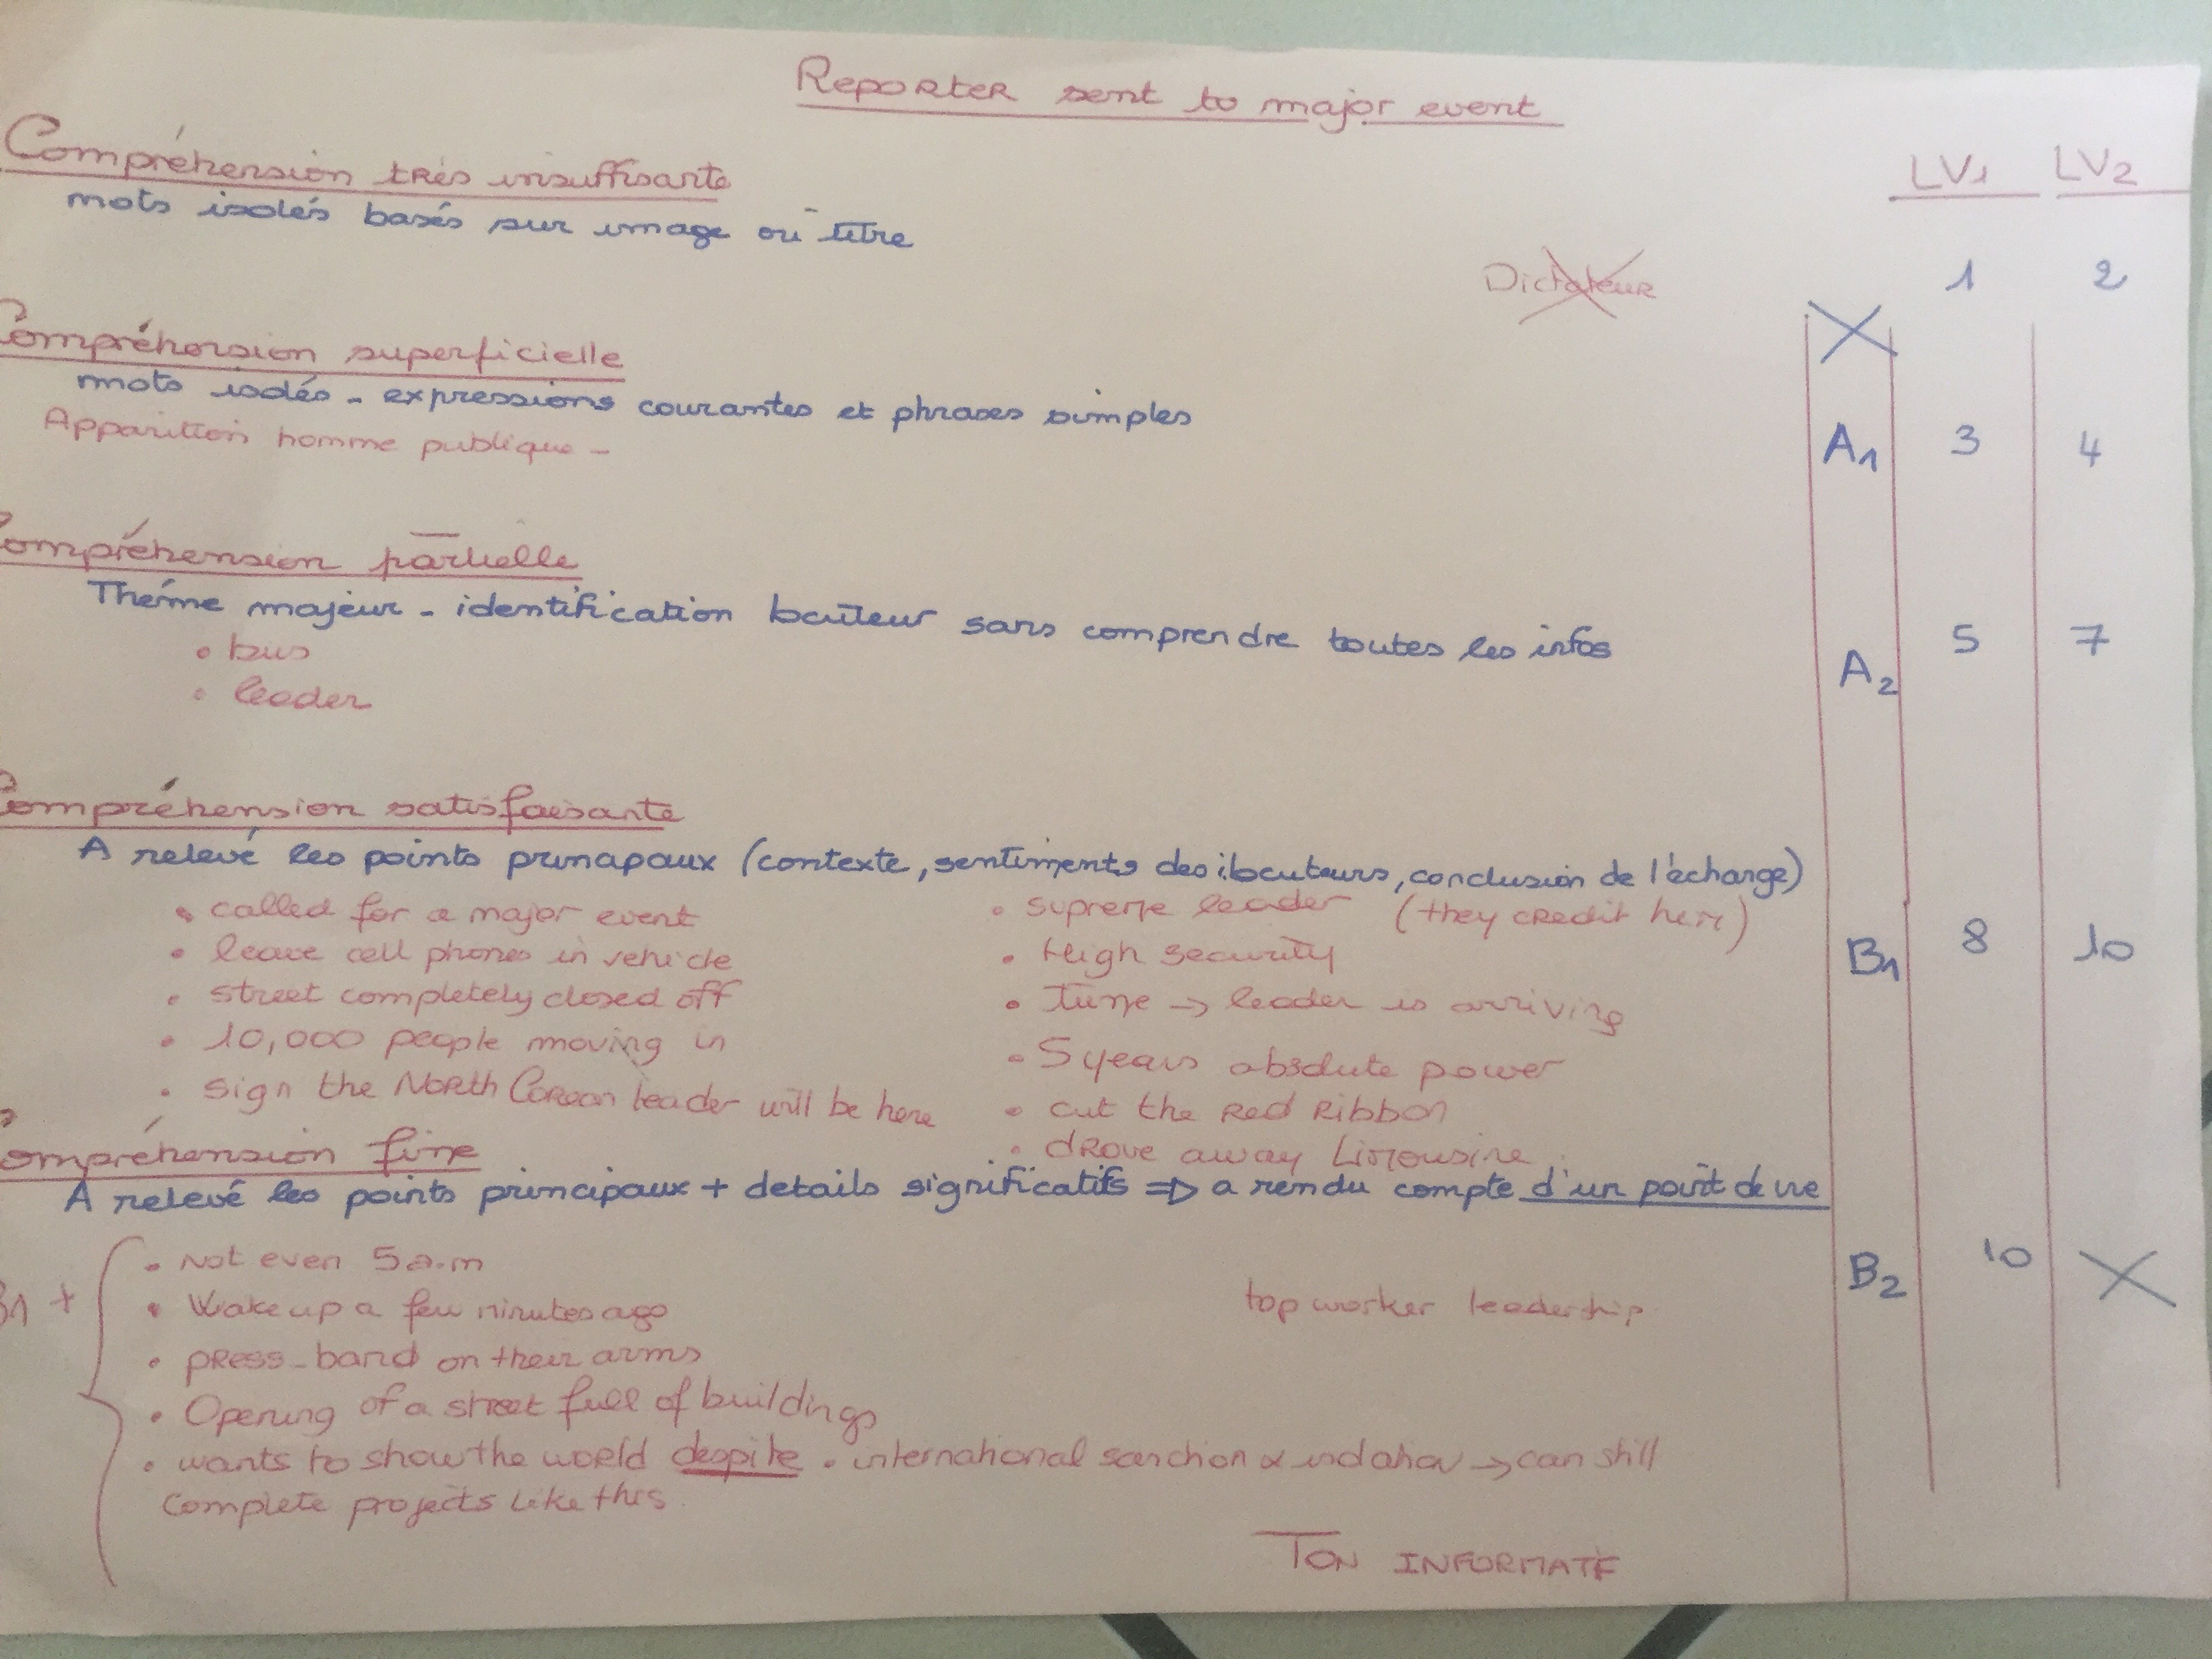 Reporter sent to major event
LV1 LV2
Compréhension très insuffisante
mots isolés basés sur image ou titre
1 2
Dictateur
X
Compréhension superficielle
mots isolés - expressions courantes et phrases simples
Apparition homme publique -
A1 3 4
Compréhension partielle
Thème majeur - identification locuteur sans comprendre toutes les infos
• bus
• leader
A2 5 7
Compréhension satisfaisante
A relevé les points principaux (contexte, sentiments des locuteurs, conclusion de l'échange)
• called for a major event
• leave cell phones in vehicle
• street completely closed off
• 10,000 people moving in
• sign the North Corean leader will be here
• supreme leader (they credit him)
• High security
• Tune → leader is arriving
• 5 years absolute power
• cut the red ribbon
• drove away Limousine
B1 8 10
Compréhension fine
A relevé les points principaux + details significatifs ⇒ a rendu compte d'un point de vue
B1 +
• Not even 5 a.m
• Wake up a few minutes ago
• press-band on their arms
• Opening of a street full of buildings
• wants to show the world despite • international sanction & → can still
complete projects like this
top worker leadership
B2 10 X
TON INFORMATIF